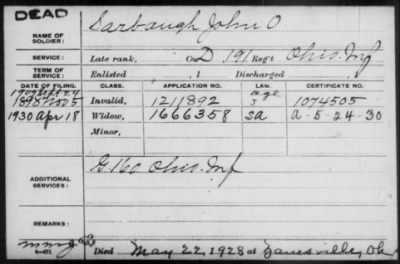 DEAD
NAME OF SOLDIER: Sarbaugh, John O
SERVICE: Late rank, Co. D 191 Reg't Ohio Inf
TERM OF SERVICE: Enlisted , 1 Discharged
DATE OF FILING. CLASS. APPLICATION NO. LAW. CERTIFICATE NO.
age
1898 Nov 5 Invalid, 1211892 1074505
1930 Apr 18 Widow, 1666358 SA A-5-24-30
Minor,
ADDITIONAL SERVICES: G 160 Ohio Inf
REMARKS:
Died May 22, 1928 at Zanesville, Oh